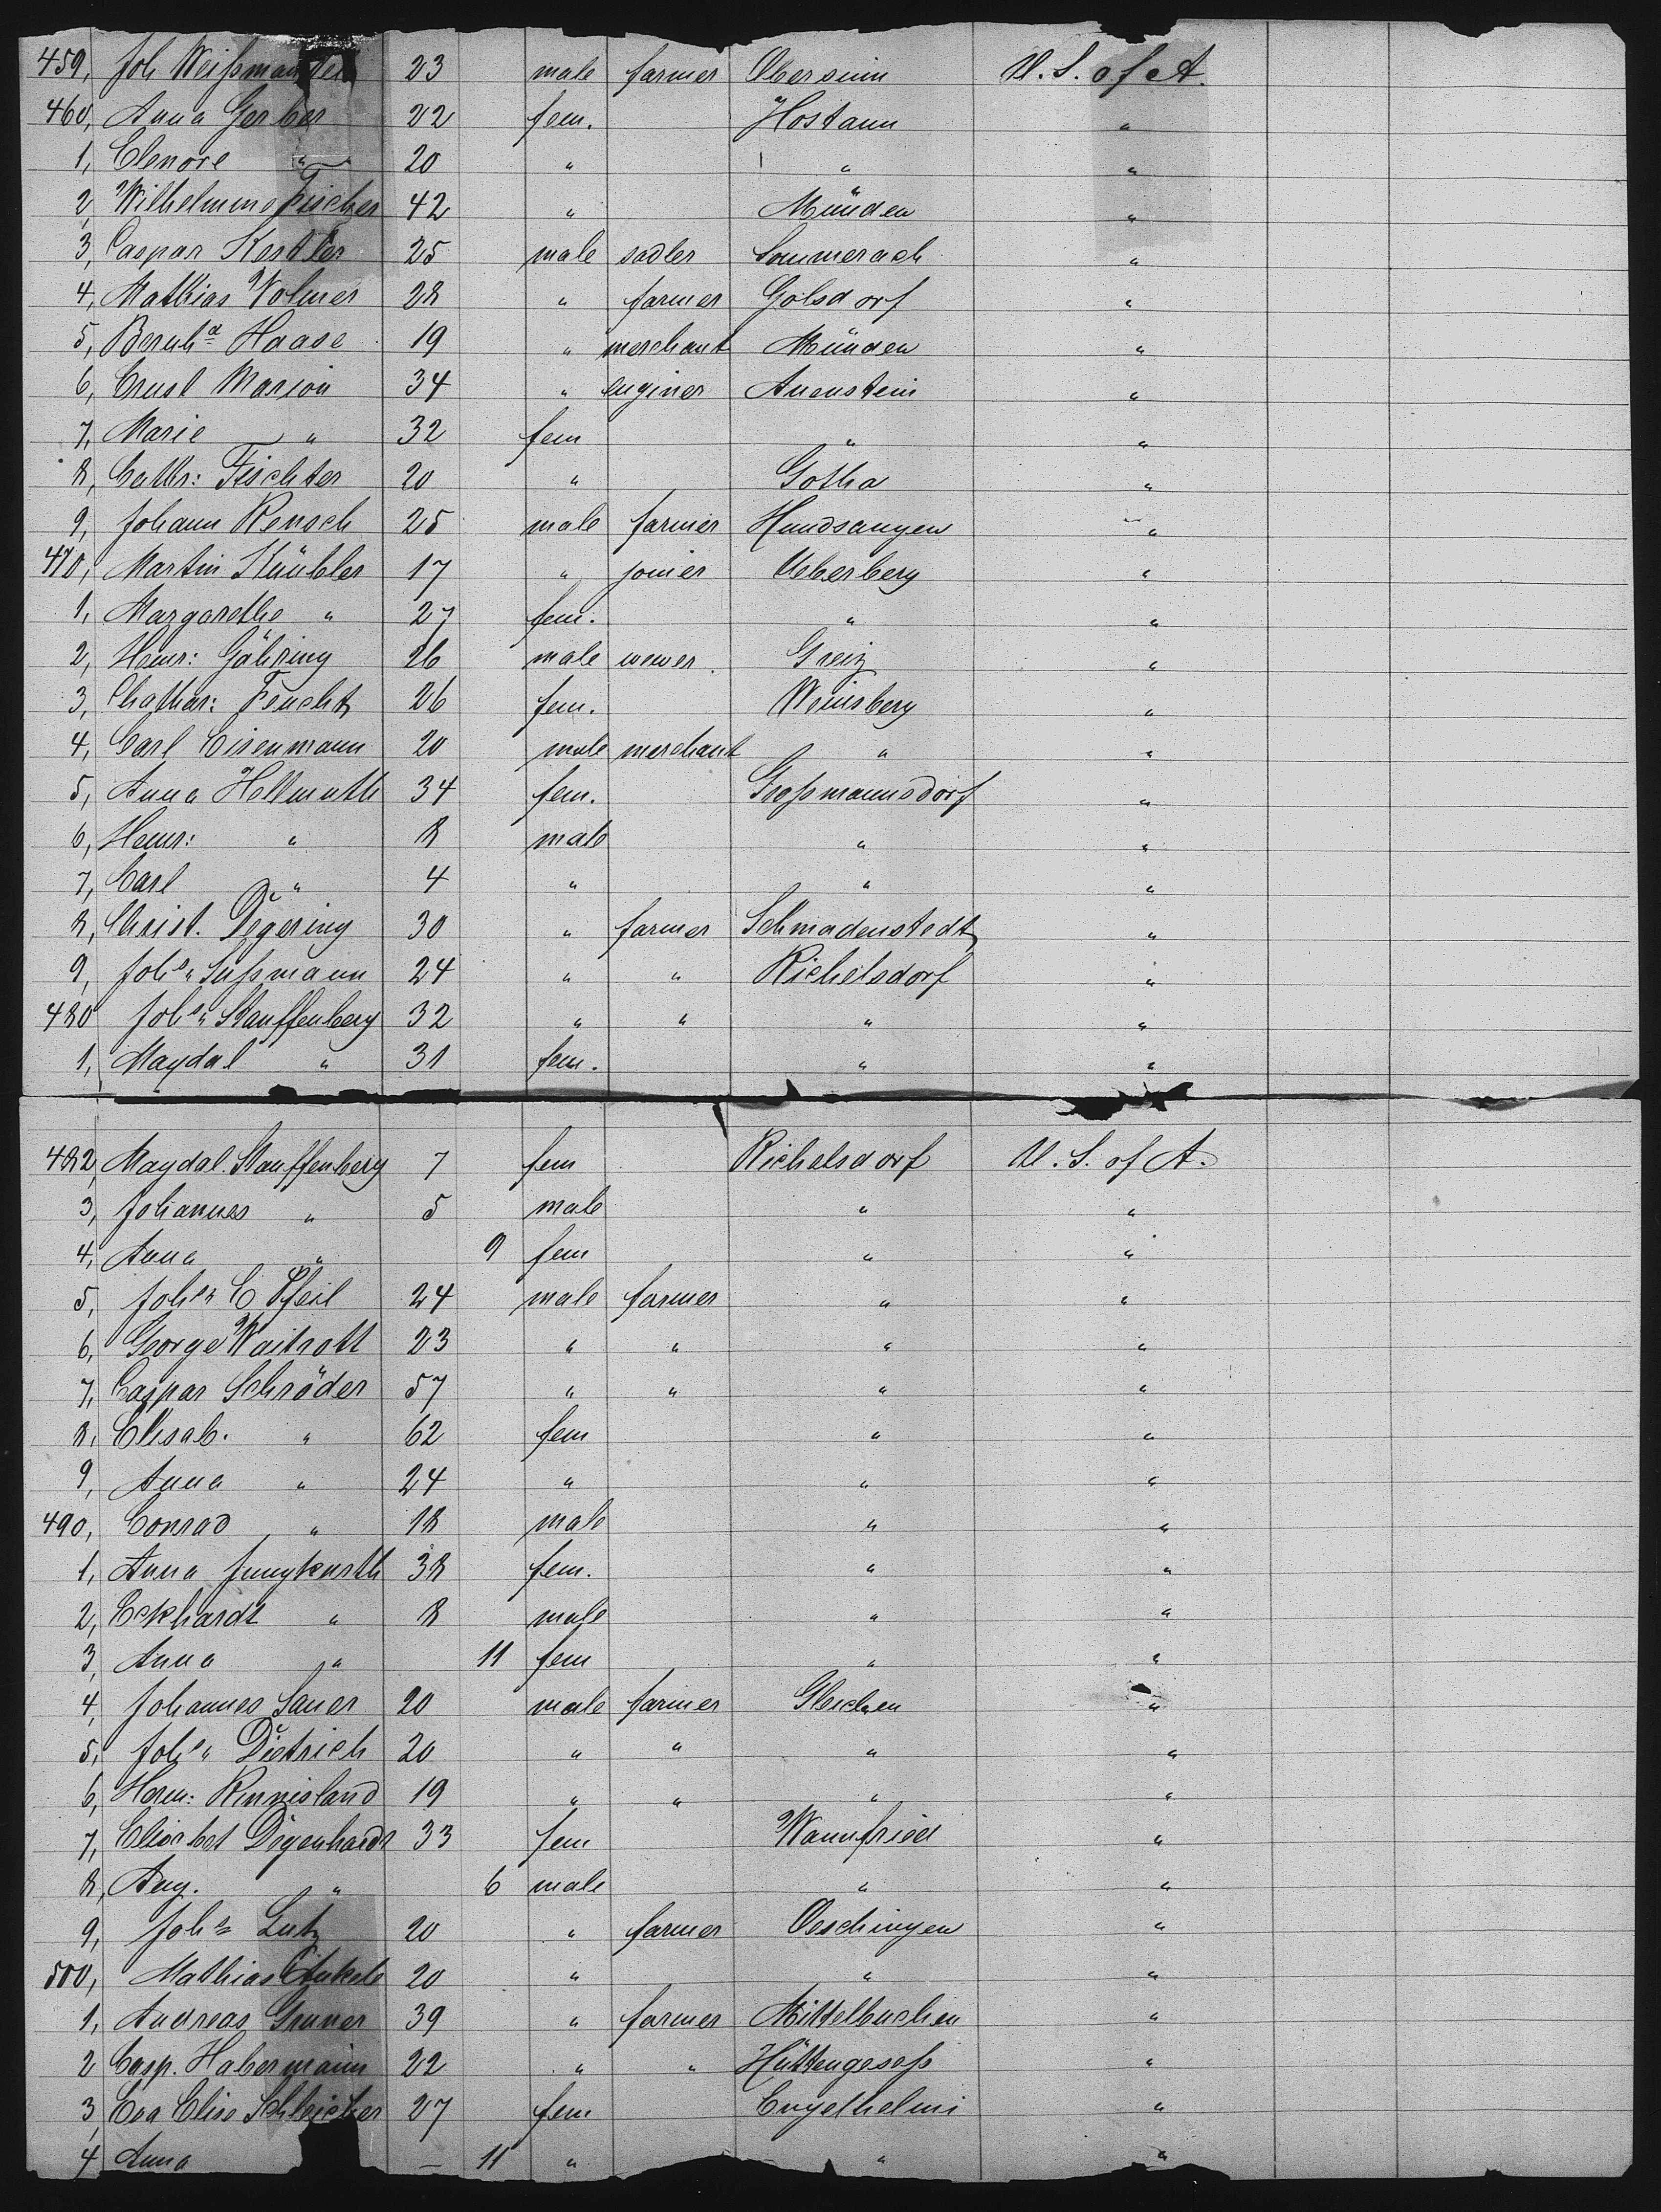 459, Joh Weißman 23 male farmer Obersinn U. S. of A.
460, Anna Gerber 22 fem. Hostann "
1, Elenore " 20 " " "
2, Wilhelmine Fischer 42 " Münden "
3, Caspar Kestler 25 male sadler Sommerach "
4, Mathias Volmer 28 " farmer Golsdorf "
5, Bernhd Haase 19 " merchant Münden "
6, Ernst Marion 34 " enginer Auenstein "
7, Marie " 32 fem " "
8, Cathr: Fischter 20 " Gotha "
9, Johann Rensch 25 male farmer Hundsangen "
470, Martin Knübler 17 " joiner Ueberberg "
1, Margarethe " 27 fem. " "
2, Heinr: Göhring 26 male wewer. Greiz "
3, Chathar: Feucht 26 fem. Weinsberg "
4, Carl Eisenmann 20 male merchant " "
5, Anna Hellmuth 34 fem. Großmannsdorf "
6, Heinr: " 8 male " "
7, Carl " 4 " " "
8, Christ. Degering 30 " farmer Schmadenstedt "
9, Johs. Sußmann 24 " " Richelsdorf "
480 Johs. Stauffenberg 32 " " " "
1, Magdal " 31 fem. " "
482, Magdal. Stauffenberg 7 fem Richelsdorf U. S. of A.
3, Johannes " 5 male " "
4, Anna " 9 fem " "
5, Johs. C Pfeil 24 male farmer " "
6, George Waitrott 23 " " " "
7, Caspar Schröder 57 " " " "
8, Elisab. " 62 fem " "
9, Anna " 24 " " "
490, Conrad " 18 male " "
1, Anna Jungkurth 38 fem. " "
2, Eckhardt " 8 male " "
3, Anna " 11 fem " "
4, Johannes Sauer 20 male farmer Gleichen "
5, Johs. Dietrich 20 " " " "
6, Herm: Rinnisland 19 " " " "
7, Elisabet Degenhardt 33 fem Wannfried "
8, Aug. " 6 male " "
9, Johs Lutz 20 " farmer Oeschingen "
500, Mathias Ankele 20 " " "
1, Andreas Gruner 39 " farmer Mittelbuchen "
2 Casp. Habermann 22 " " Hüttengesaß "
3, Eva Elise Schleicher 27 fem Engelhelms "
4 Anna — 11 " " "